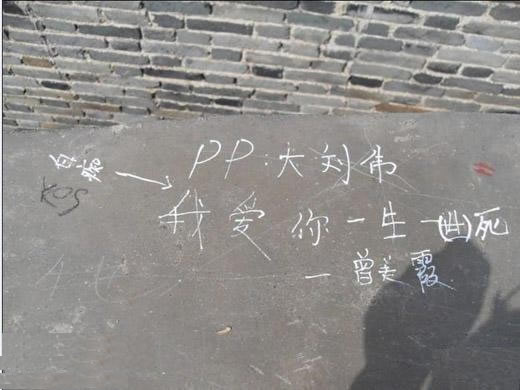 白痴
KOS
PP:大刘伟
我爱你一生一(世)死
一曾美霞